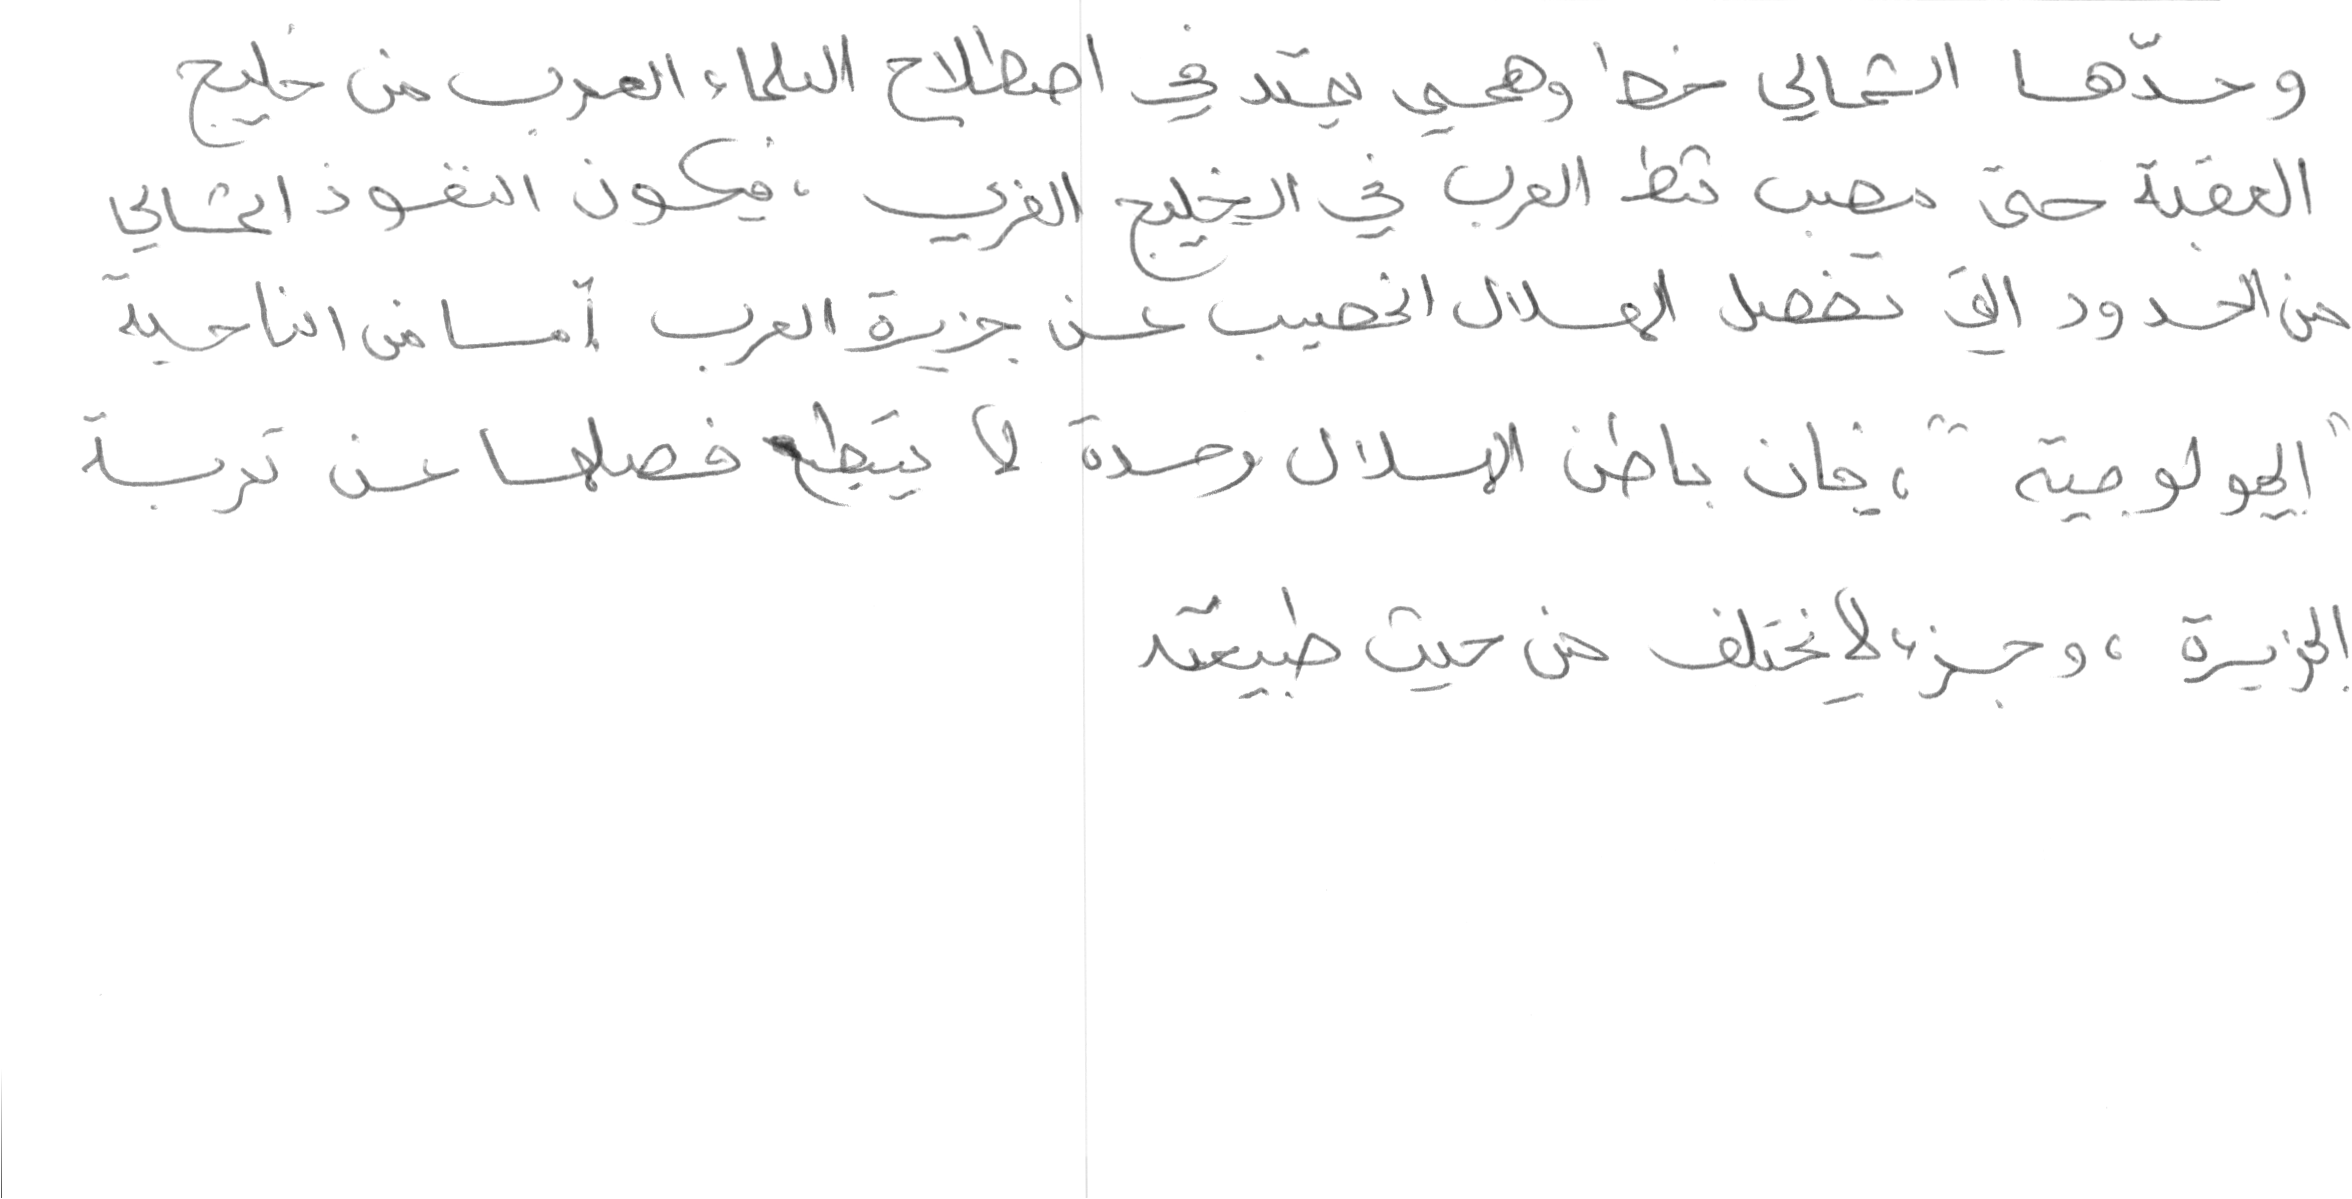 وحدّها الشمالي خط وهمي يمتد في اصطلاح العلماء العرب من خليج
العقبة حتى مصب شط العرب في الخليج العربي ، فيكون النفوذ الشمالي
من الحدود التي تفصل الهلال الخصيب عن جزيرة العرب أما من الناحية
"الجيولوجية" ، فإن باطن الهلال وحدة لا يستطيع فصلها عن تربة
الجزيرة ، وجزء لا يختلف من حيث طبيعته